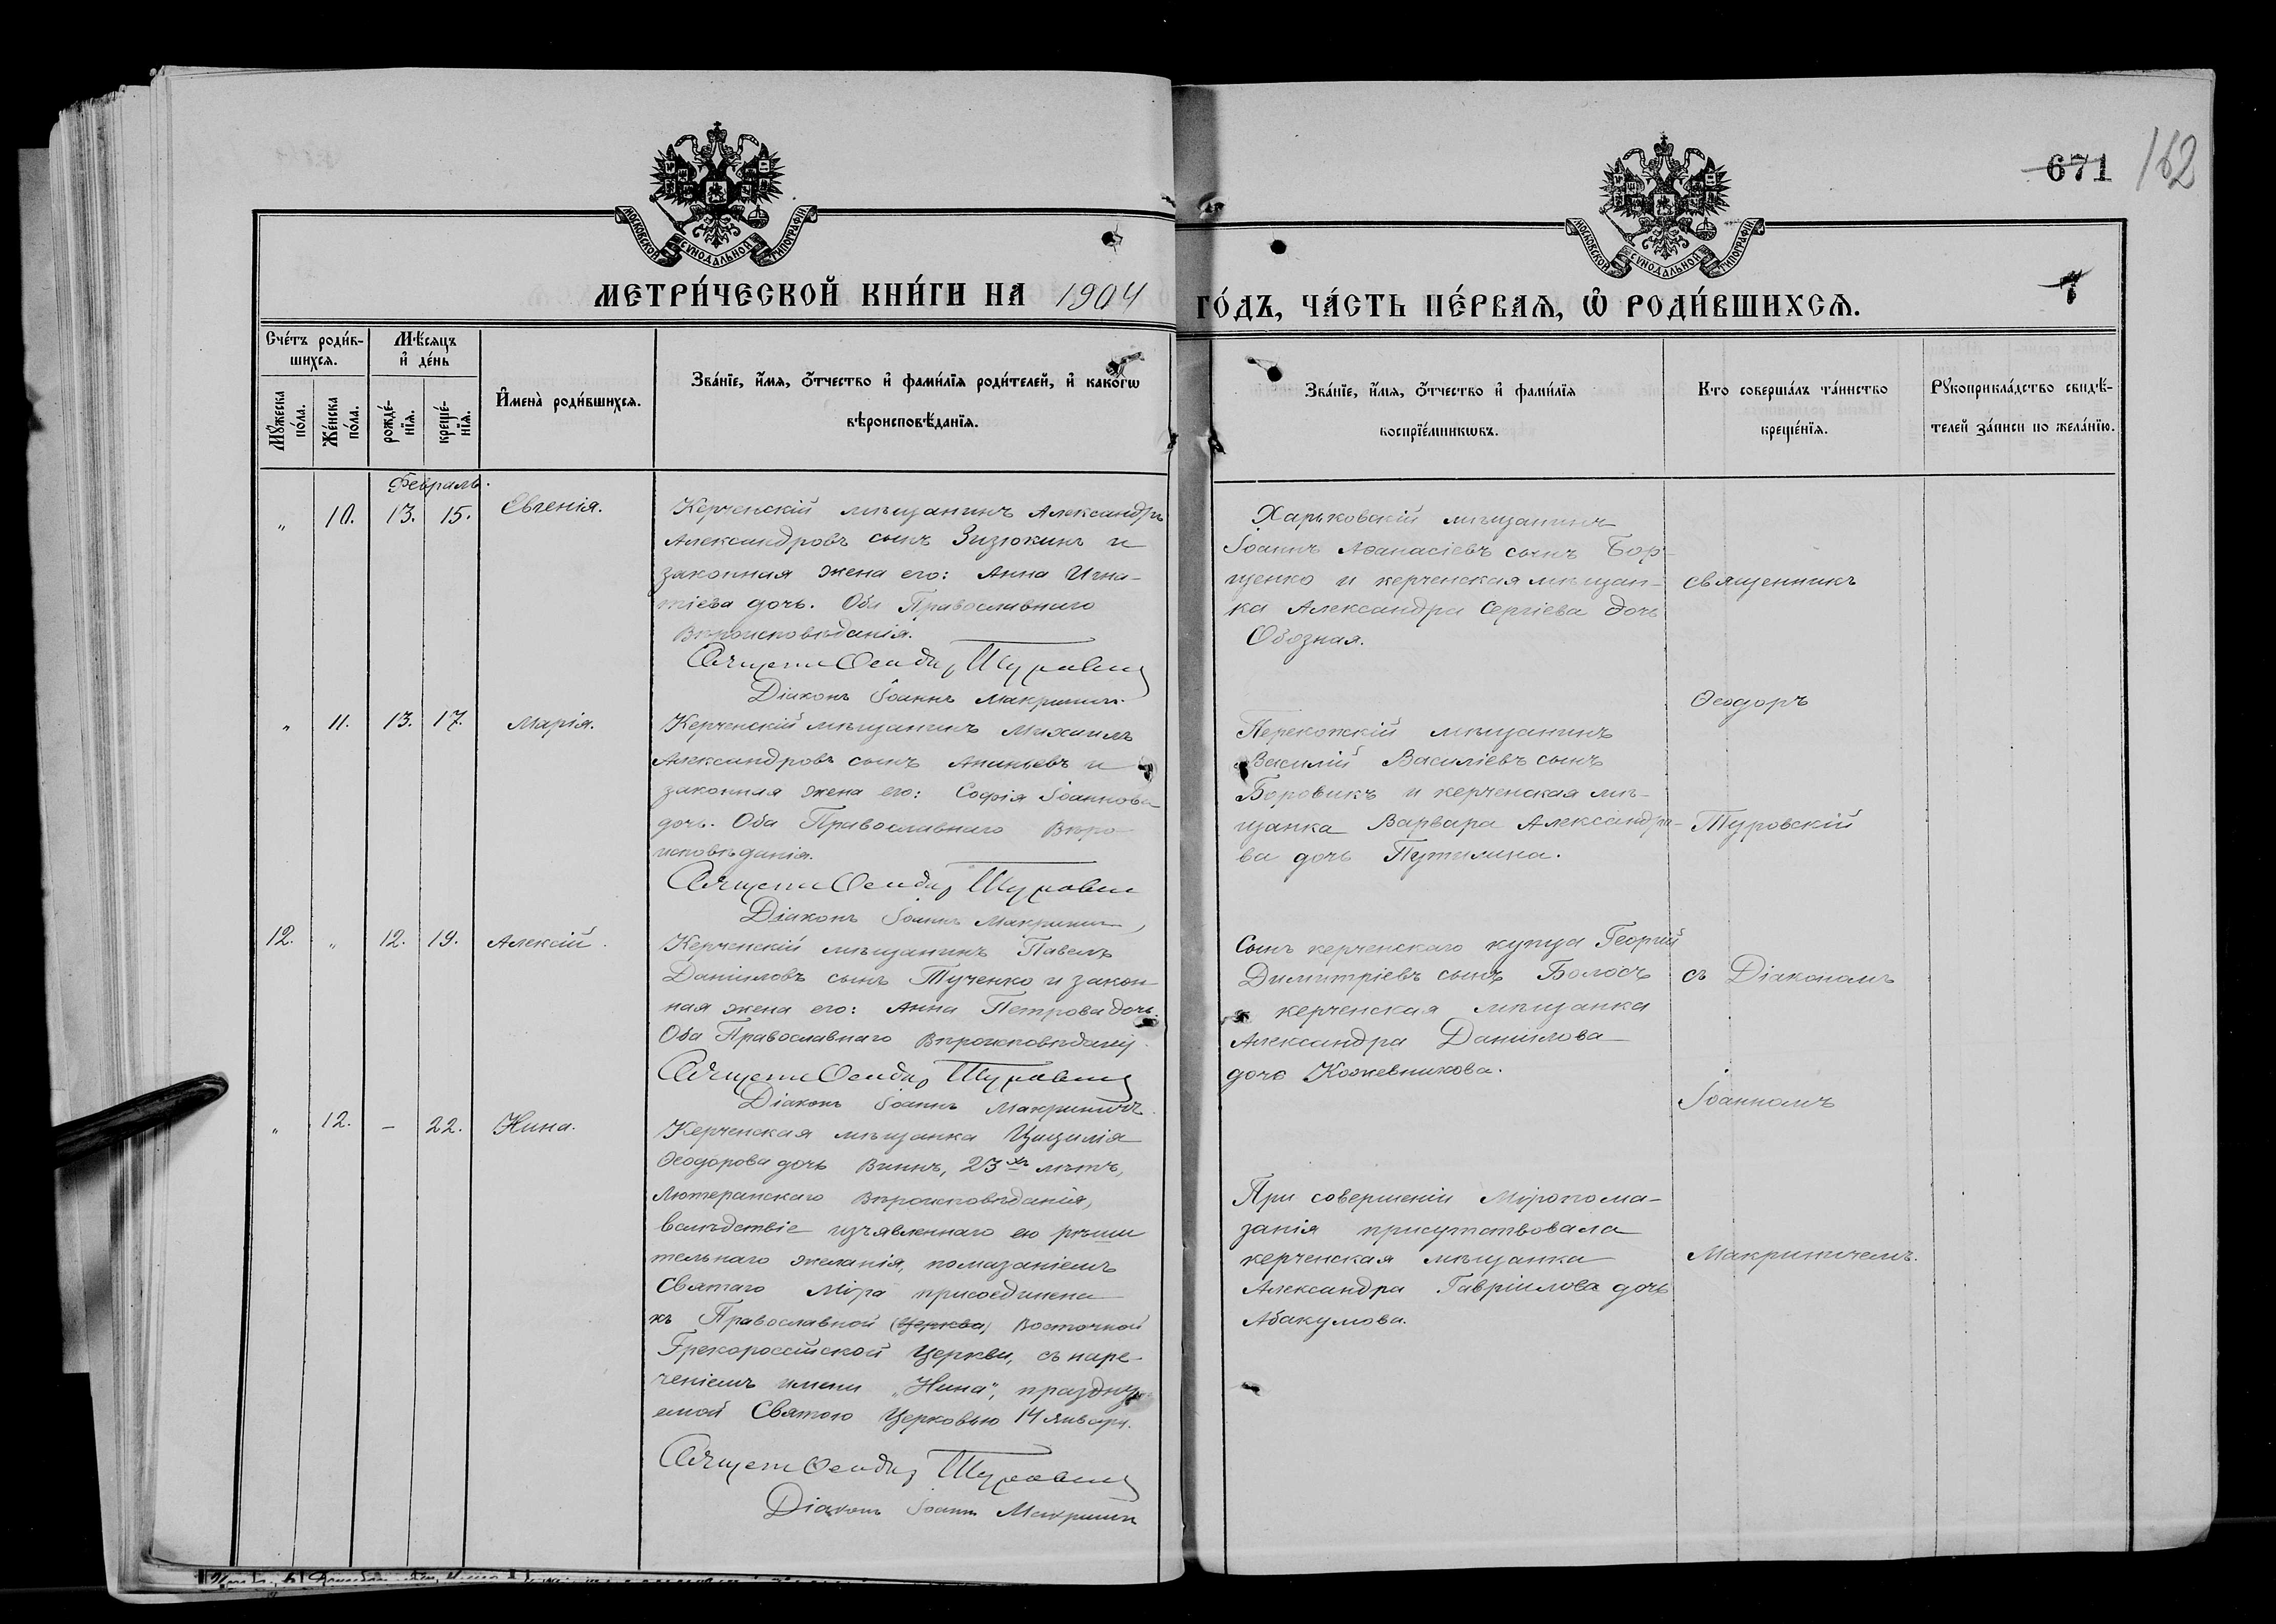 671 162
МОСКОВСКОЙ СѴНОДАЛЬНОЙ ТИПОГРАФІИ
МОСКОВСКОЙ СѴНОДАЛЬНОЙ ТИПОГРАФІИ
МЕТРИ́ЧЕСКОЙ КНИ́ГИ НА 1904
ГО́ДЪ, ЧА́СТЬ ПЕ́РВАЯ, Ѡ РОДИ́ВШИХСЯ.
Сче́тъ роди́в-
шихся.
Мꙋ́жеска
по́ла.
Же́нска
по́ла.
Мѣ́сяцъ
и҆ де́нь
рожде́-
нїя.
креще́-
нїя.
И҆мена̀ роди́вшихся.
Зва́нїе, и҆́мя, ѻ҆́тчество и҆ фами́лїя роди́телей, и҆ како́гѡ
вѣроисповѣ́данїя.
Зва́нїе, и҆́мя, ѻ҆́тчество и҆ фами́лїя
воспрїе́мникѡвъ.
Кто̀ соверша́лъ та́инство
креще́нїя.
Рꙋкоприкла́дство свидѣ́-
телей за́писи по жела́нїю.
Февраль.
„ 10. 13. 15. Евгенія.
Керченскій мѣщанинъ Александръ
Александровъ сынъ Зизюкинъ и
законная жена его: Анна Игна-
тіева дочь. Оба Православнаго
Вѣроисповѣданія.
Туровскій
Діаконъ Іоаннъ Макринич.
Харьковскій мѣщанинъ
Іоаннъ Аѳанасіевъ сынъ Бор-
щенко и керченская мѣщан-
ка Александра Сергіева дочь
Обозная.
священникъ
Ѳеодоръ
„ 11. 13. 17. Марія.
Керченскій мѣщанинъ Михаилъ
Александровъ сынъ Ананьевъ и
законная жена его: Софія Іоаннова
дочь. Оба Православнаго Вѣро-
исповѣданія.
Туровскій
Діаконъ Іоаннъ Макринич
Перекопскій мѣщанинъ
Василій Василіевъ сынъ
Боровикъ и керченская мѣ-
щанка Варвара Александро-
ва дочь Путилина.
Туровскій
12. „ 12. 19. Алексій.
Керченскій мѣщанинъ Павелъ
Даніиловъ сынъ Тученко и закон-
ная жена его: Анна Петрова дочь.
Оба Православнаго Вѣроисповѣданія.
Туровскій
Діаконъ Іоаннъ Макриничъ
Сынъ керченскаго купца Георгій
Димитріевъ сынъ Болосъ
и керченская мѣщанка
Александра Даніилова
дочь Кожевникова.
съ Діакономъ
Іоанномъ
„ 12. — 22. Нина.
Керченская мѣщанка Цецилія
Ѳеодорова дочь Виннъ, 23хъ лѣтъ,
Лютеранскаго Вѣроисповѣданія,
вслѣдствіе изъявленнаго ею рѣши
тельнаго желанія, помазаніемъ
Святаго Міра присоединена
къ Православной (Церква) Восточной
Грекороссійской Церкви, съ наре-
ченіемъ имени „Нина", праздну
емой Святою Церковью 14 января.
Туровскій
Діаконъ Іоаннъ Макринич
При совершеніи Міропома-
занія присутствовала
керченская мѣщанка
Александра Гавріилова дочь
Абакумова.
Макриничемъ.